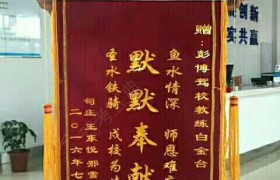 赠：彭博驾校教练白金台
鱼水情深 师恩难
默默奉献
圣水铁骑 戍被为
司庄 王东悦 那雪
二〇一六年七
创新
实共赢